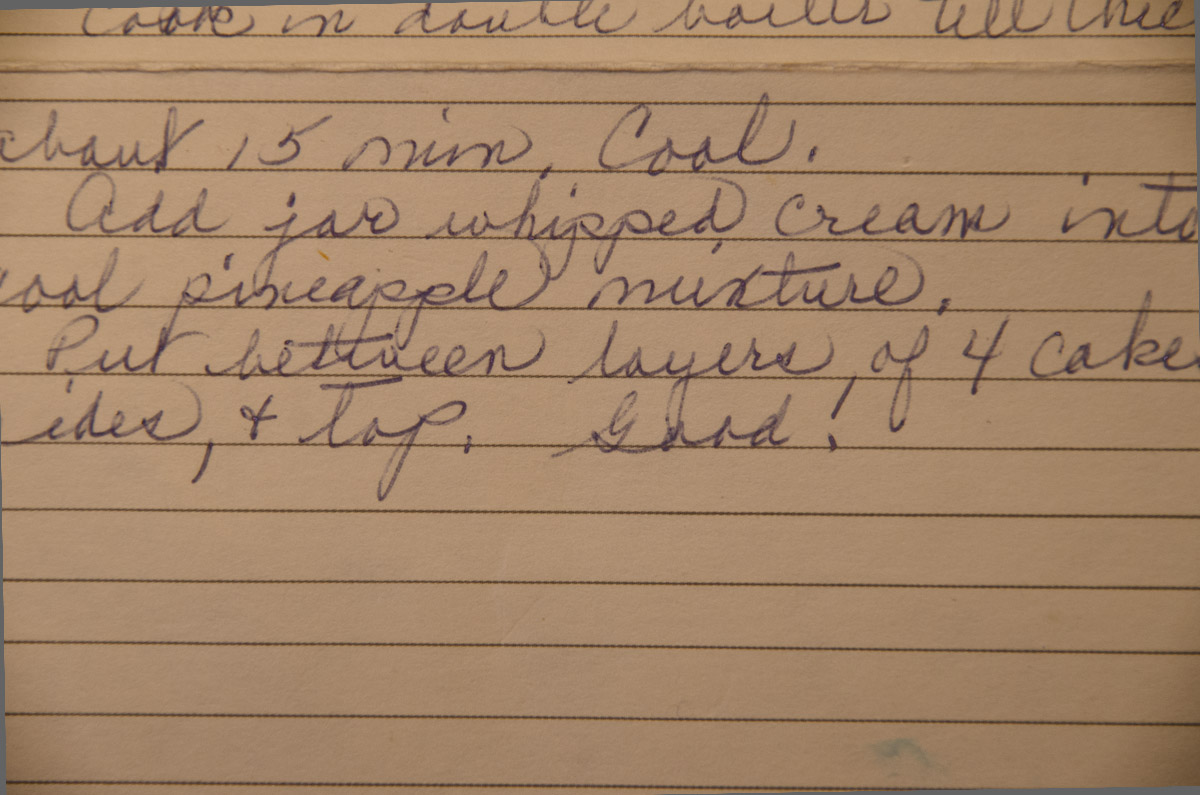 Cook in double boiler till thic
about 15 min. Cool.
Add jar whipped cream into
cool pineapple mixture.
Put between layers, of 4 cake
ides, & top. Good!